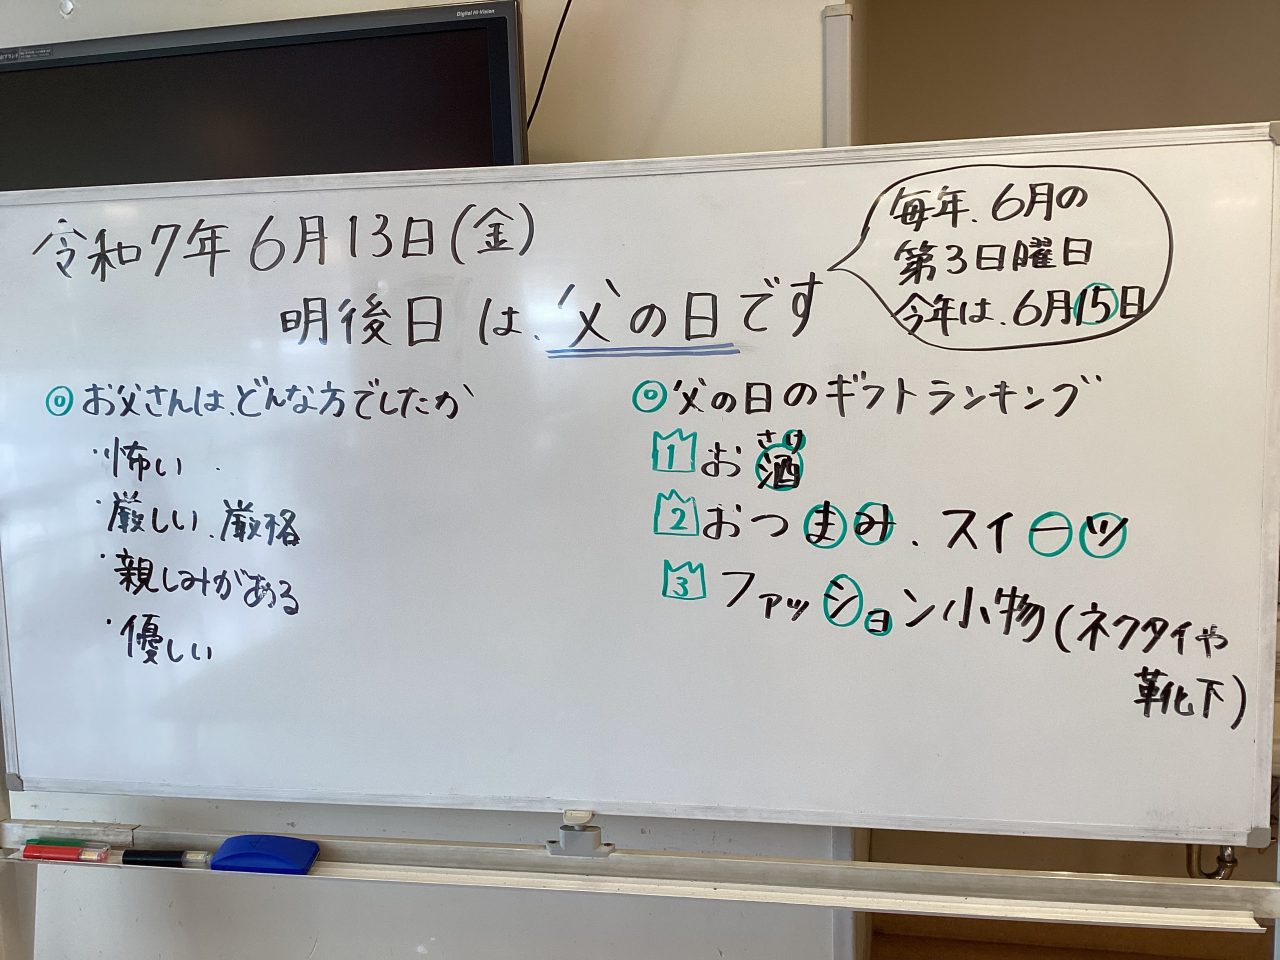 Digital Hi-Vision
令和7年6月13日(金)
明後日は、父の日です
毎年、6月の
第3日曜日
今年は、6月15日
◎お父さんは、どんな方でしたか
・怖い
・厳しい、厳格
・親しみがある
・優しい
◎父の日のギフトランキング
1 お酒
さけ
2 おつまみ、スイーツ
3 ファッション小物(ネクタイや
靴下)